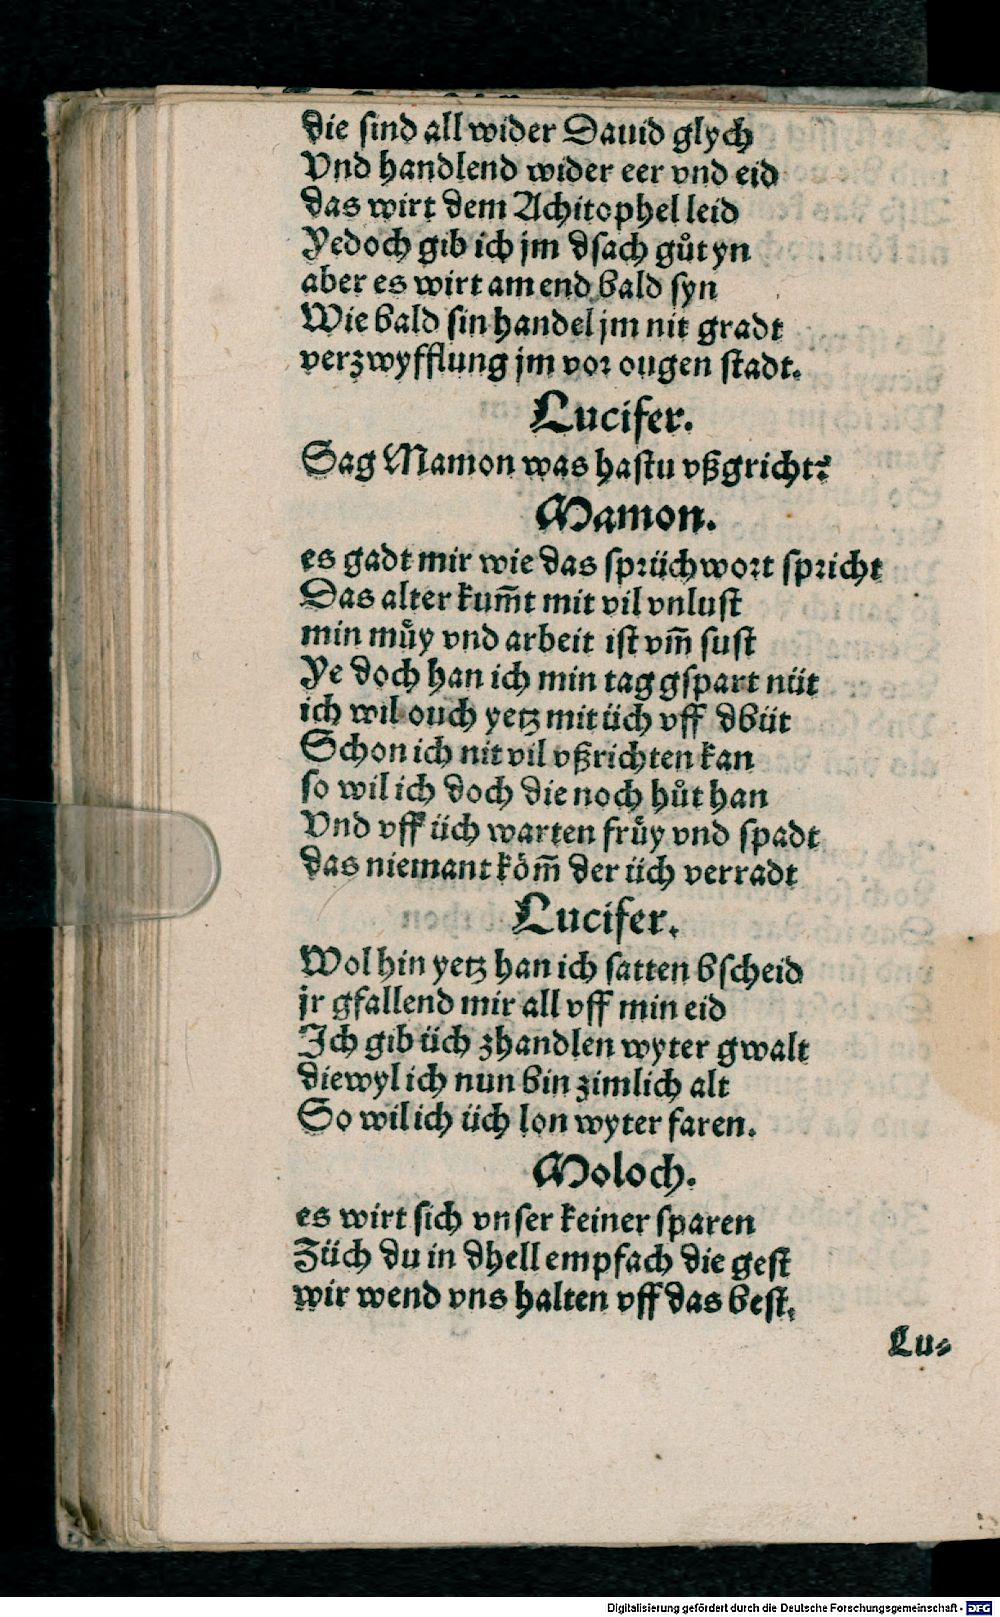 die sind all wider Dauid glych
Vnd handlend wider eer vnd eid
das wirt dem Achitophel leid
Yedoch gib ich jm dsach gůt yn
aber es wirt am end bald syn
Wie bald sin handel jm nit gradt
verzwyfflung jm vor ougen stadt.
Lucifer.
Sag Mamon was hastu vßgricht?
Mamon.
es gadt mir wie das sprüchwort spricht
Das alter kum̄t mit vil vnlust
min mu̇y vnd arbeit ist vm̄ sust
Ye doch han ich min tag gspart nüt
ich wil ouch yetz mit üch vff dbüt
Schon ich nit vil vßrichten kan
so wil ich doch die noch hůt han
Vnd vff üch warten frůy vnd spadt
das niemant köm̄ der üch verradt
Lucifer.
Wol hin yetz han ich satten bscheid
jr gfallend mir all vff min eid
Ich gib üch zhandlen wyter gwalt
diewyl ich nun bin zimlich alt
So wil ich üch lon wyter faren.
Moloch.
es wirt sich vnser keiner sparen
Züch du in dhell empfach die gest
wir wend vns halten vff das best.
Lu⸗
Digitalisierung gefördert durch die Deutsche Forschungsgemeinschaft - DFG